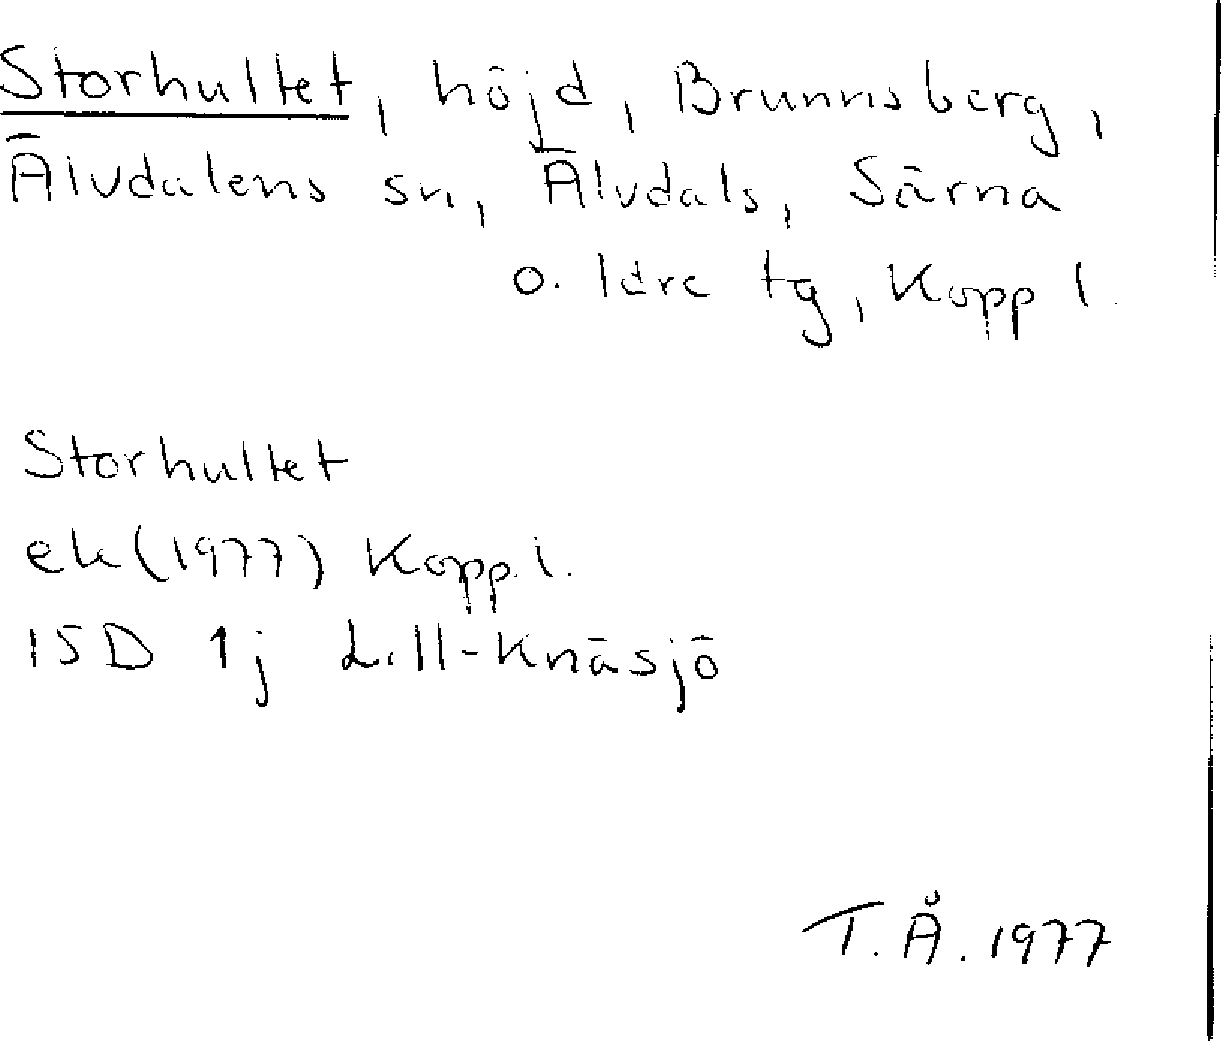 Storhultet, höjd, Brunnsberg,
Älvdalens sn, Älvdals, Särna
o. Idre tg, Kopp l.
Storhultet
ek (1977) Kopp. l.
15D 1j Lill-Knäsjö
T. Å. 1977